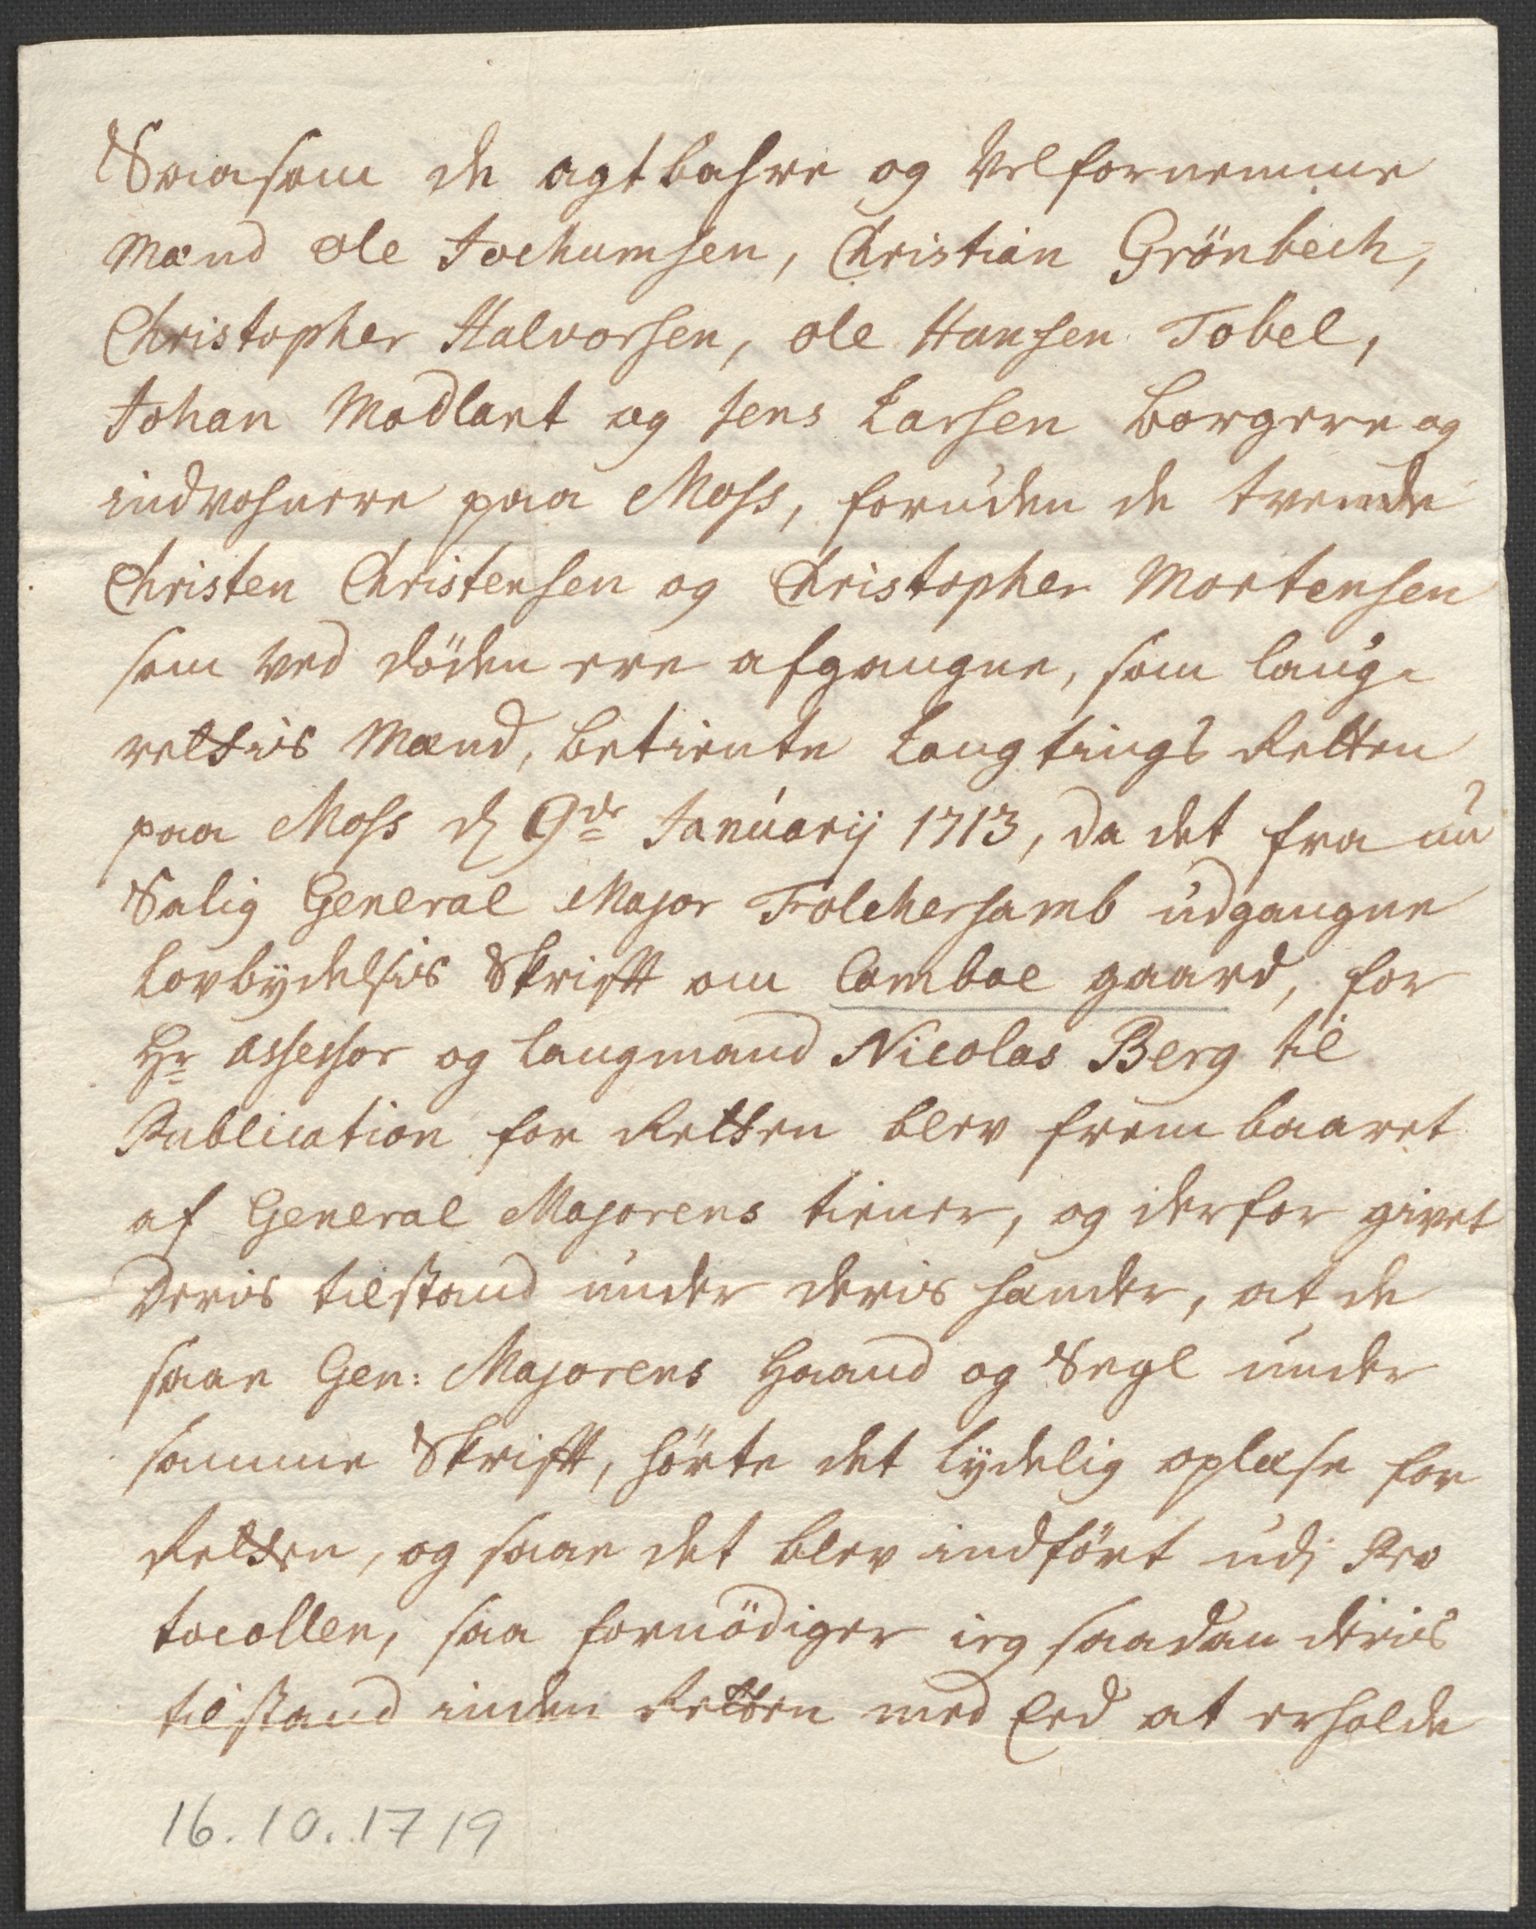 Saasom de agtbahre og Velfornemme
Mænd Ole Jochumsen, Christian Grönbech,
Christopher Halvorsen, Ole Hansen Tobel,
Johan Modlant og Jens Larsen borgere og
indvohnere paa Moss, foruden de tvende
Christen Christensen og Christopher Mortensen
som ved döden ere afgangne, som laug-
rettis Mænd, betiente Laugtings Retten
paa Moss d 9de Januarij 1713, da det fra nu
Salig General Major Folchersamb udgangne
Lovbydelsis Skrift om Camboe gaard, for
Hr Assessor og Laugmand Nicolas Berg til
Publication for Retten blev frembaaret
af General Majorens tiener, og derfor givet
Deris tilstand under deris hænder, at de
saae Gen: Majorens Haand og Segl under
samme Skrift, hörte det lydelig oplæse for
Retten, og saae det blev indfört udj Pro
tocollen, saa fornödiger ieg saadan deris
tilstand inden Retten med Eed at erholde
16.10.1719